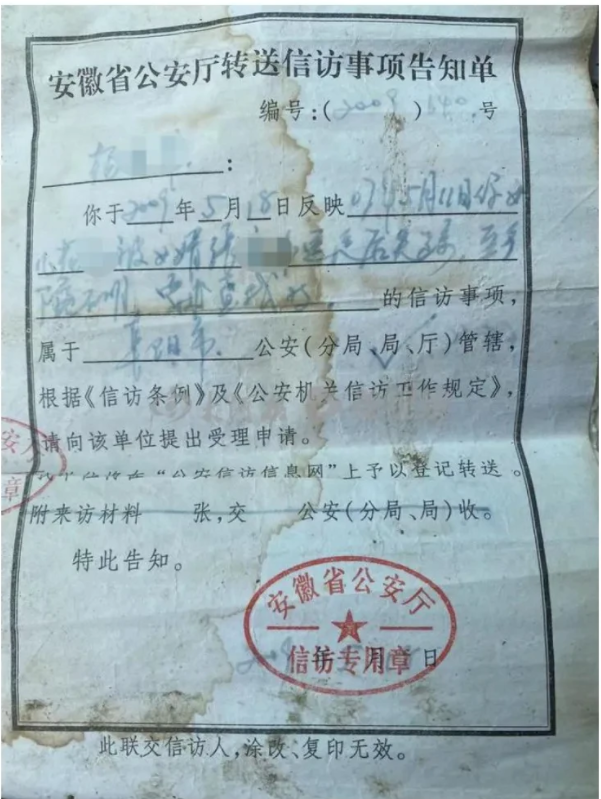 安徽省公安厅转送信访事项告知单
编号:(2009)640号
:
你于2009年5月18日反映07年5月11日你女
被女婿张
的信访事项,
属于阜阳市公安(分局、局、厅)管辖,
根据《信访条例》及《公安机关信访工作规定》,
请向该单位提出受理申请。
“公安信访信息网”上予以登记转送。
附来访材料 张,交 公安(分局、局)收。
特此告知。
安徽省公安厅
信访专用章
年 月 日
此联交信访人,涂改、复印无效。